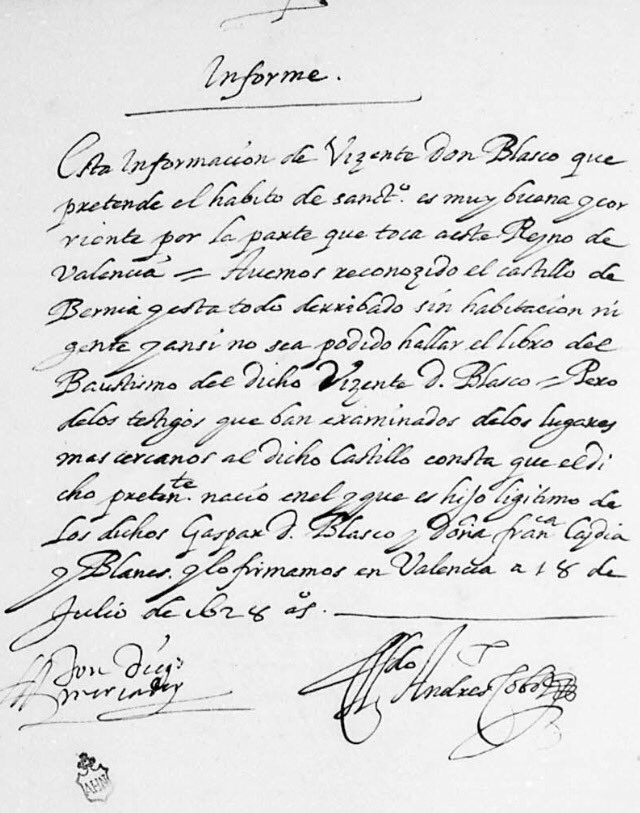 Informe.
Esta Informacion de Vizente Don Blasco que
pretende el habito de sanct.º es muy buena y cor
riente por la parte que toca a este Reyno de
Valencia = Auemos reconozido el castillo de
Bernia y esta todo derribado sin habitacion ni
gente y ansi no sea podido hallar el libro del
Bautismo del dicho Vizente d. Blasco = Pero
de los testigos que ban examinados de los lugares
mas cercanos al dicho Castillo consta que el di
cho preten.te nacio en el y que es hijo ligitimo de
Los dichos Gaspar d. Blasco y Doña fran.ca
y Blanes. y lo firmamos en Valencia a 18 de
Julio de 1628 as.
Don Dieg.º
mercader
Ldo Andres
AHN